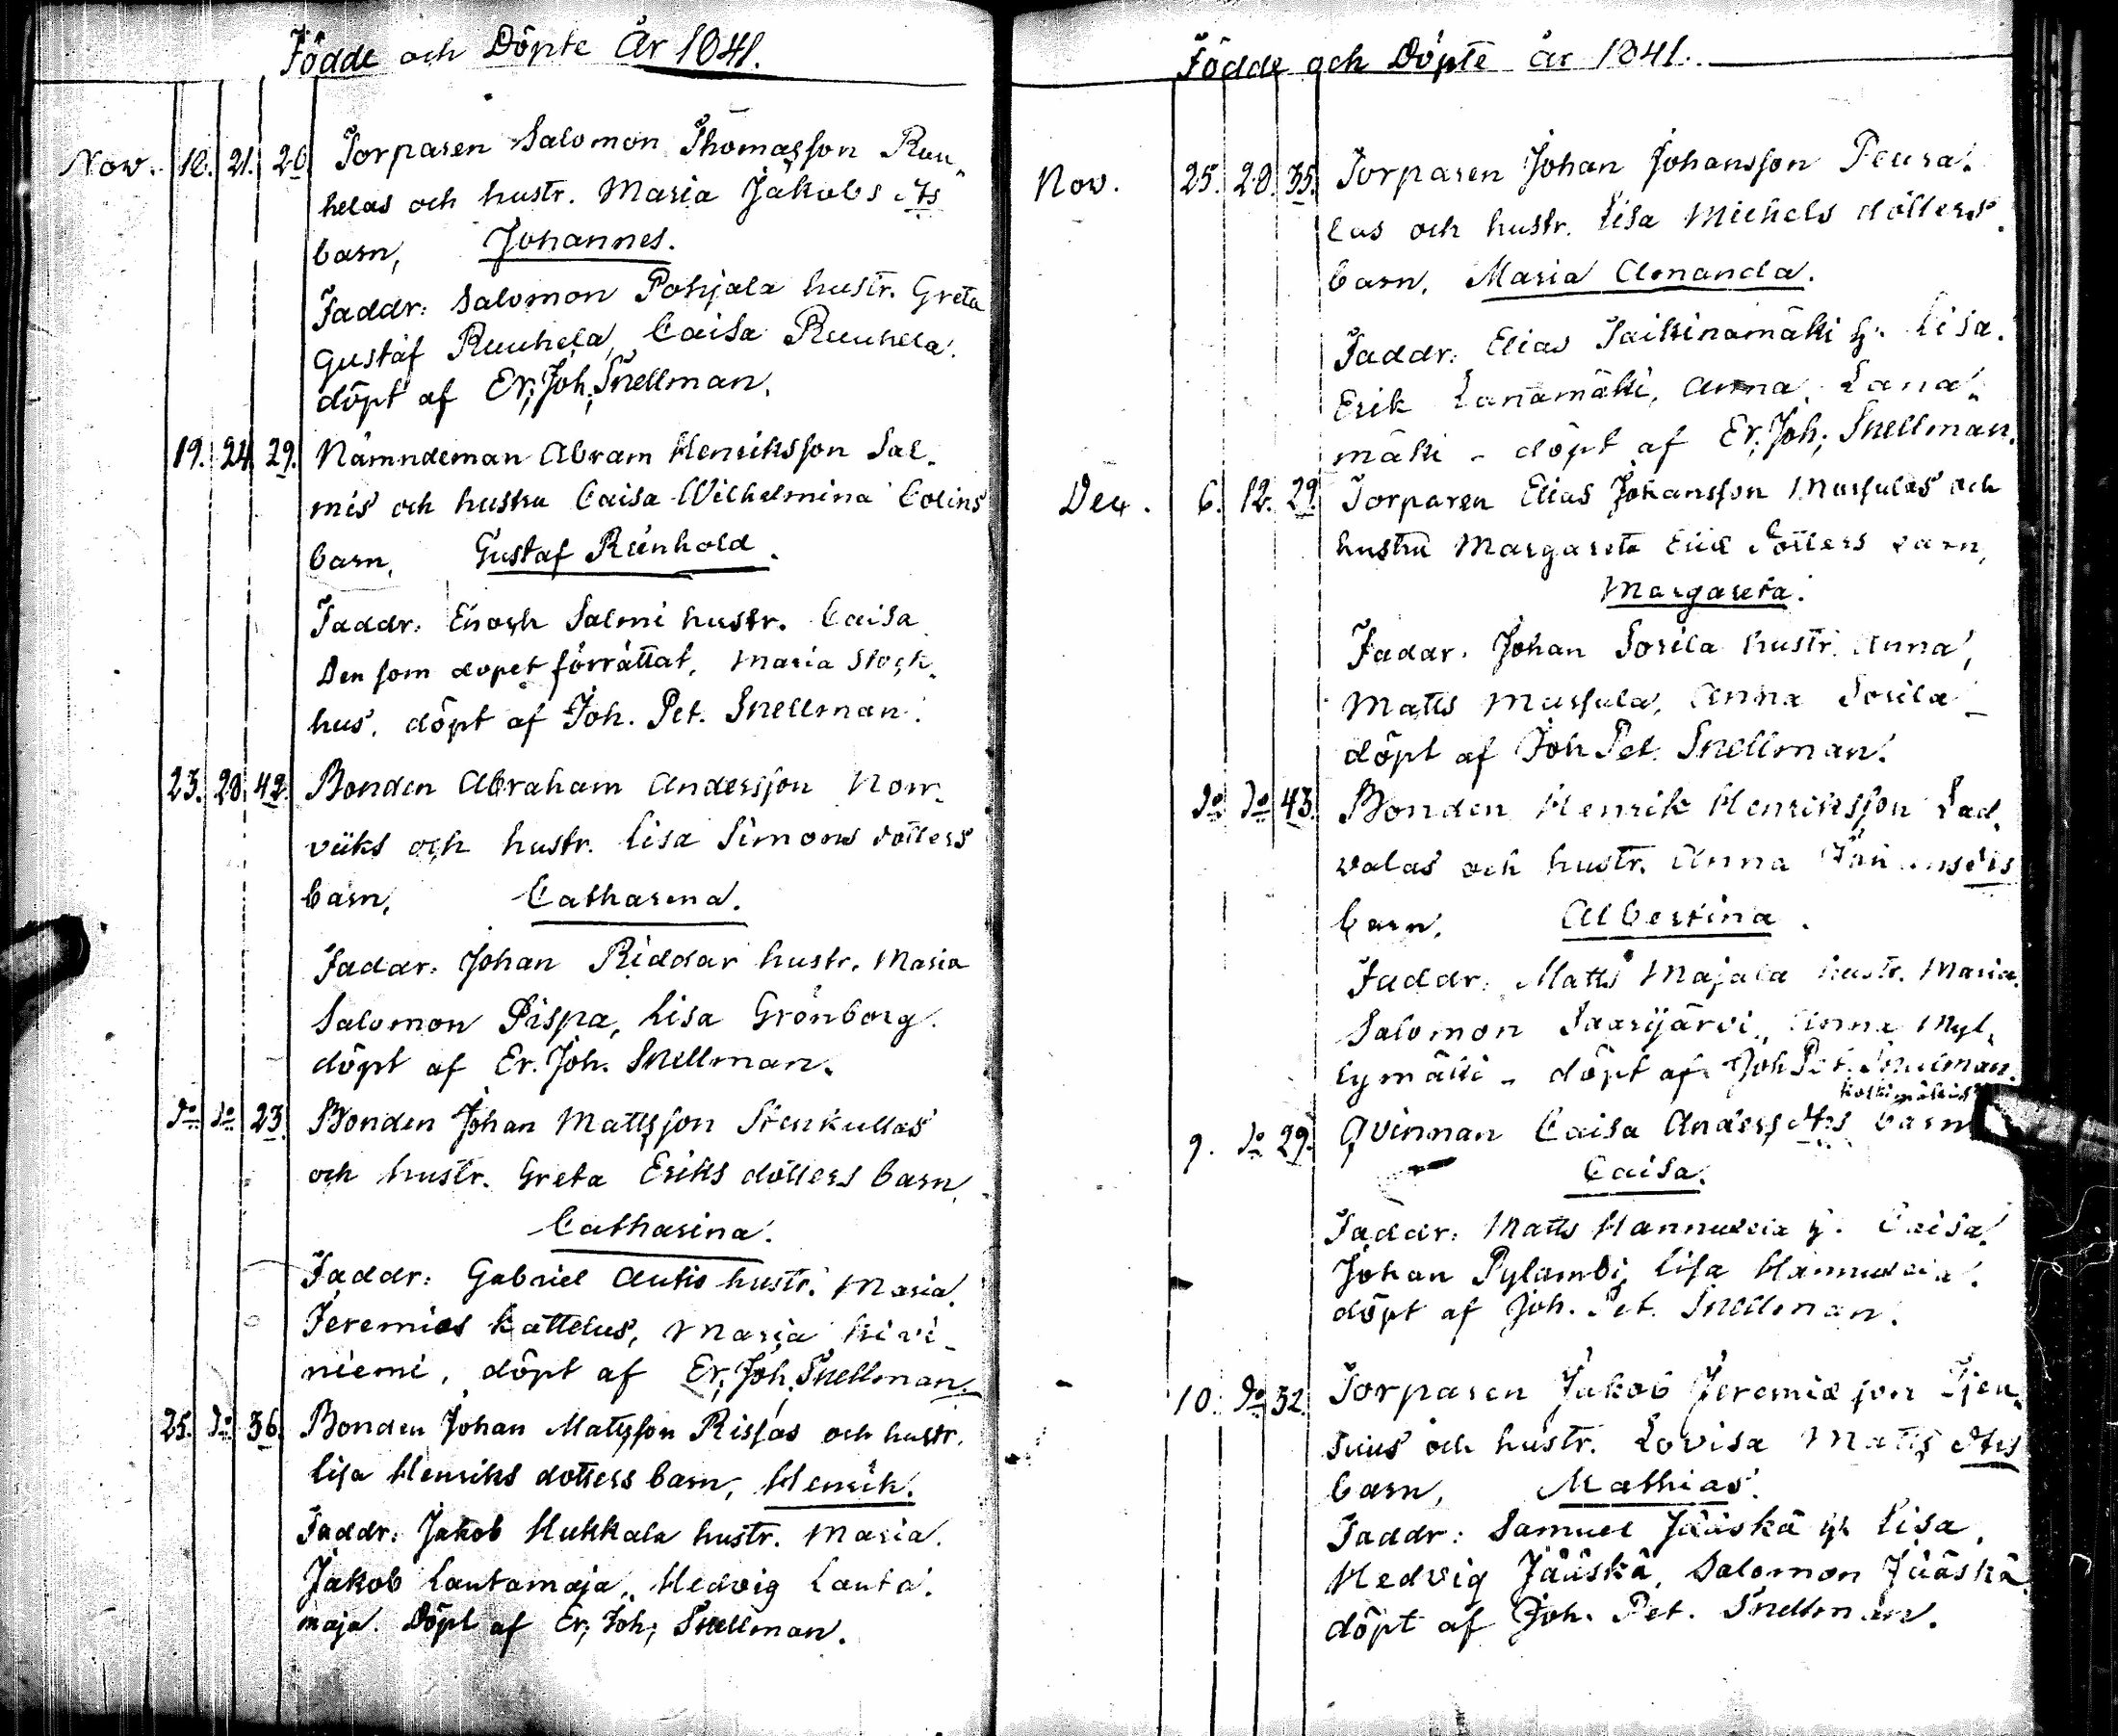 Födde och Döpte År 1841.
Nov. 18. 21. 26. Torparen Salomon Thomasson Ruu-
helas och hustr. Maria Jakobs dts
barn, Johannes.
Faddr: Salomon Pohjala hustr. Greta
Gustaf Ruuhela, Caisa Ruuhela.
döpt af Er. Joh. Snellman.
19. 24. 29. Nämndeman Abram Henriksson Sal-
mis och hustru Caisa Wilhelmina Colins
barn, Gustaf Reinhold.
Faddr: Enoch Salmi hustr. Caisa
Den som dopet förrättat, Maria Stock-
hus. döpt af Joh. Pet. Snellman.
23. 28. 42. Bonden Abraham Andersson Norr-
viiks och hustr. Lisa Simons dotters
barn, Catharina.
Faddr: Johan Riddar hustr. Maria
Salomon Pispa, Lisa Grönborg.
döpt af Er. Joh. Snellman.
Do Do 23. Bonden Johan Mattsson Stenkullas
och hustr. Greta Eriks dotters barn,
Catharina.
Faddr: Gabriel Antis hustr. Maria.
Jeremias Kattelus, Maria Kivi-
niemi, döpt af Er. Joh. Snellman.
25. Do 36. Bonden Johan Mattsson Rissas och hustr.
Lisa Henriks dotters barn, Henrik.
Faddr: Jakob Hukkala hustr. Maria.
Jakob Lautamaja, Hedvig Lauta-
maja. Döpt af Er. Joh. Snellman.
Födde och Döpte år 1841.
Nov. 25. 28. 35. Torparen Johan Johansson Peura-
las och hustr. Lisa Michels dotters
barn, Maria Amanda.
Faddr: Elias Saikinamäki h. Lisa.
Erik Lanamäki, Anna Lana-
mäki - döpt af Er. Joh. Snellman.
Dec. 6. 12. 29. Torparen Elias Johansson Massulas och
hustru Margareta Eliæ dotters barn,
Margareta.
Faddr: Johan Sorila hustr. Anna,
Matts Massula, Anna Sorila -
döpt af Joh. Pet. Snellman.
Do Do 43. Bonden Henrik Henriksson Lad-
valas och hustr. Anna dts
barn, Albertina.
Faddr: Matts Majala hustr. Maria.
Salomon Saarijärvi, Anna Myl-
lymäki - döpt af Joh. Pet. Snellman.
9. Do 29. Qvinnan Caisa Anders dts Koskimäkis barn
Caisa.
Faddr: Matts Hannuksela h. Caisa.
Johan Pylambi, Lisa Hannuksela.
döpt af Joh. Pet. Snellman.
10. Do 32. Torparen Jakob Jeremiæ son Tjen-
suus och hustr. Lovisa Matts dts
barn, Mathias.
Faddr: Samuel Jääskä h. Lisa,
Hedvig Jääskä, Salomon Jääskä.
döpt af Joh. Pet. Snellman.